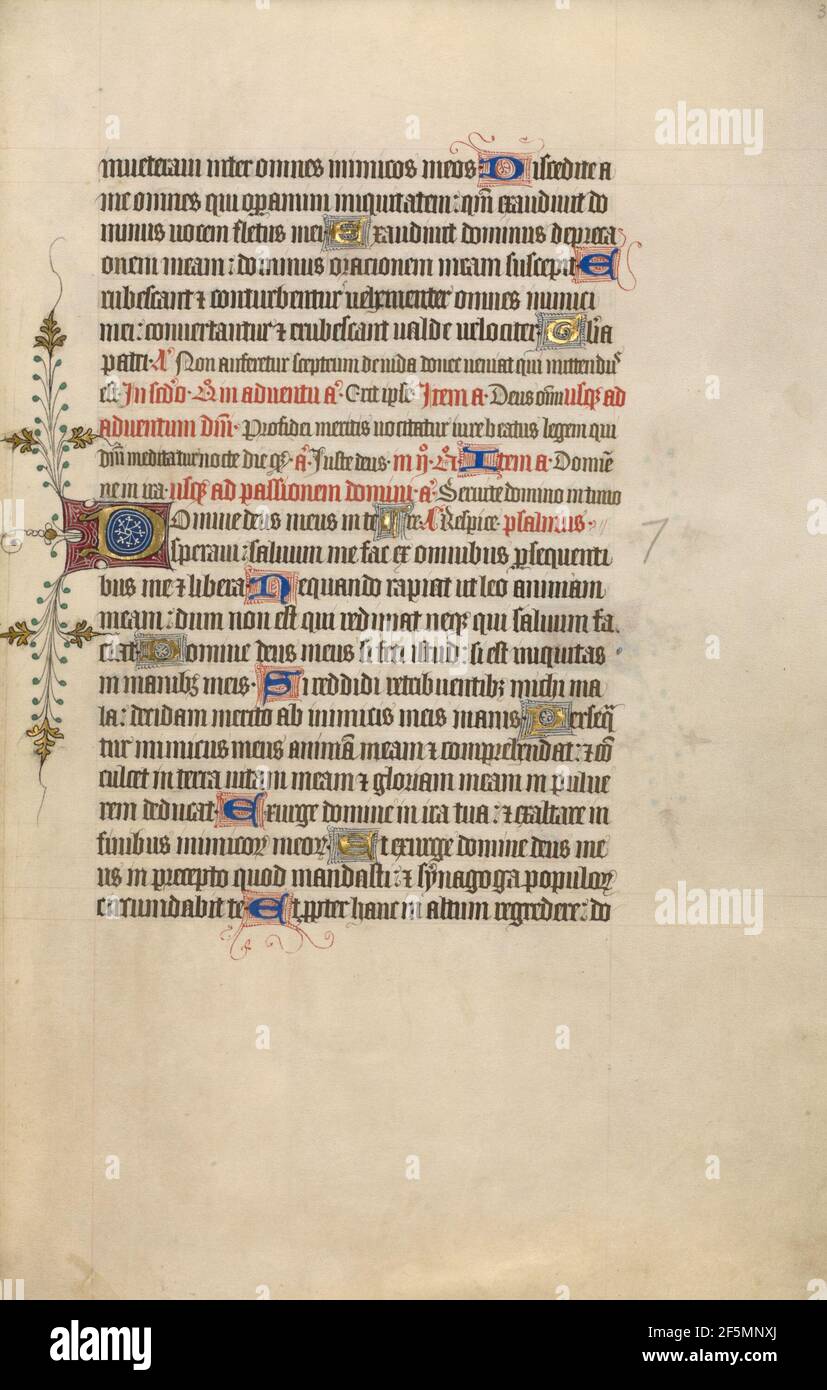 3
mueteraui inter omnes inimicos meos· Discedite a
me omnes qui oꝑamini iniquitatem: qm̄ exaudiuit do
minus uocem fletus mei· Exaudiuit dominus depreca
onem meam: dominus orationem meam suscepit· E
rubescant ⁊ conturbentur uehementer omnes inimici
mei: conuertantur ⁊ erubescant ualde uelociter· Gl̄ia
patri· A̅· Non auferetur sceptrum de iuda donec ueniat qui mittendus
est· In sc̄do· in aduentu a̅· Erit ipse· Item a· Deus om̄i usqꝫ ad
aduentum dn̄i· meritis uocitatur iure beatus legem qui
dn̄i meditatur nocte die qꝫ· a̅· Iuste deus· Item a· Domine
ne in ira· usqꝫ ad passionem domini· a̅· Seruite domino in timo
re· A̅ Respice· psalmus·
Domine deus meus in te
speraui: saluum me fac ex omnibus ꝑsequenti
bus me ⁊ libera Nequando rapiat ut leo animam
meam: dum non est qui redimat neqꝫ qui saluum fa
ciat· Domine deus meus si feci istud: si est iniquitas
in manibꝫ meis· Si reddidi retribuentibꝫ michi ma
la: decidam merito ab inimicis meis inanis· Perseq̄
tur inimicus meus animā meam ⁊ comprehendat: ⁊ cō
culcet in terra uitam meam ⁊ gloriam meam in pulue
rem deducat· Exurge domine in ira tua: ⁊ exaltare in
finibus inimicoꝝ meoꝝ· Et exurge domine deus me
us in precepto quod mandasti: ⁊ synagoga populoꝝ
circumdabit te Et ꝓpter hanc in altum regredere: do
7
alamy
alamy
alamy
a
alamy
Image ID: 2F5MNXJ
www.alamy.com